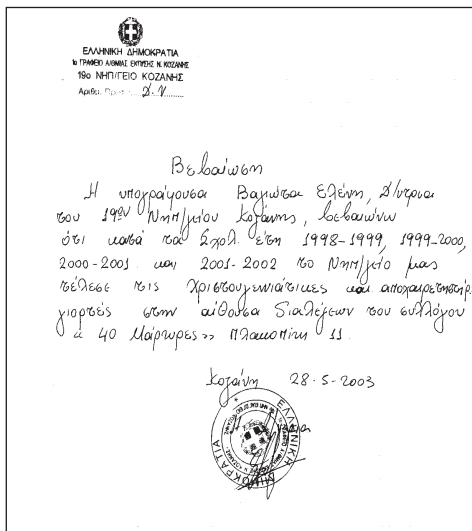 ΕΛΛΗΝΙΚΗ ΔΗΜΟΚΡΑΤΙΑ
1ο ΓΡΑΦΕΙΟ Α/ΘΜΙΑΣ ΕΚΠ/ΣΗΣ Ν. ΚΟΖΑΝΗΣ
19ο ΝΗΠ/ΓΕΙΟ ΚΟΖΑΝΗΣ
Αριθμ. Πρωτ. Δ.Υ
Βεβαίωση
Η υπογράφουσα Βαγιώτσα Ελένη, Δ/ντρια
του 19ου Νηπ/γείου Κοζάνης, βεβαιώνω
ότι κατά τα Σχολ. έτη 1998-1999, 1999-2000,
2000-2001 και 2001-2002 το Νηπ/γείο μας
τέλεσε τις Χριστουγεννιάτικες και αποχαιρετηστήρ.
γιορτές στην αίθουσα διαλέξεων του συλλόγου
« 40 Μάρτυρες» Πλακοπίτη 11.
Κοζάνη 28-5-2003
ΕΛΛΗΝΙΚΗ ΔΗΜΟΚΡΑΤΙΑ